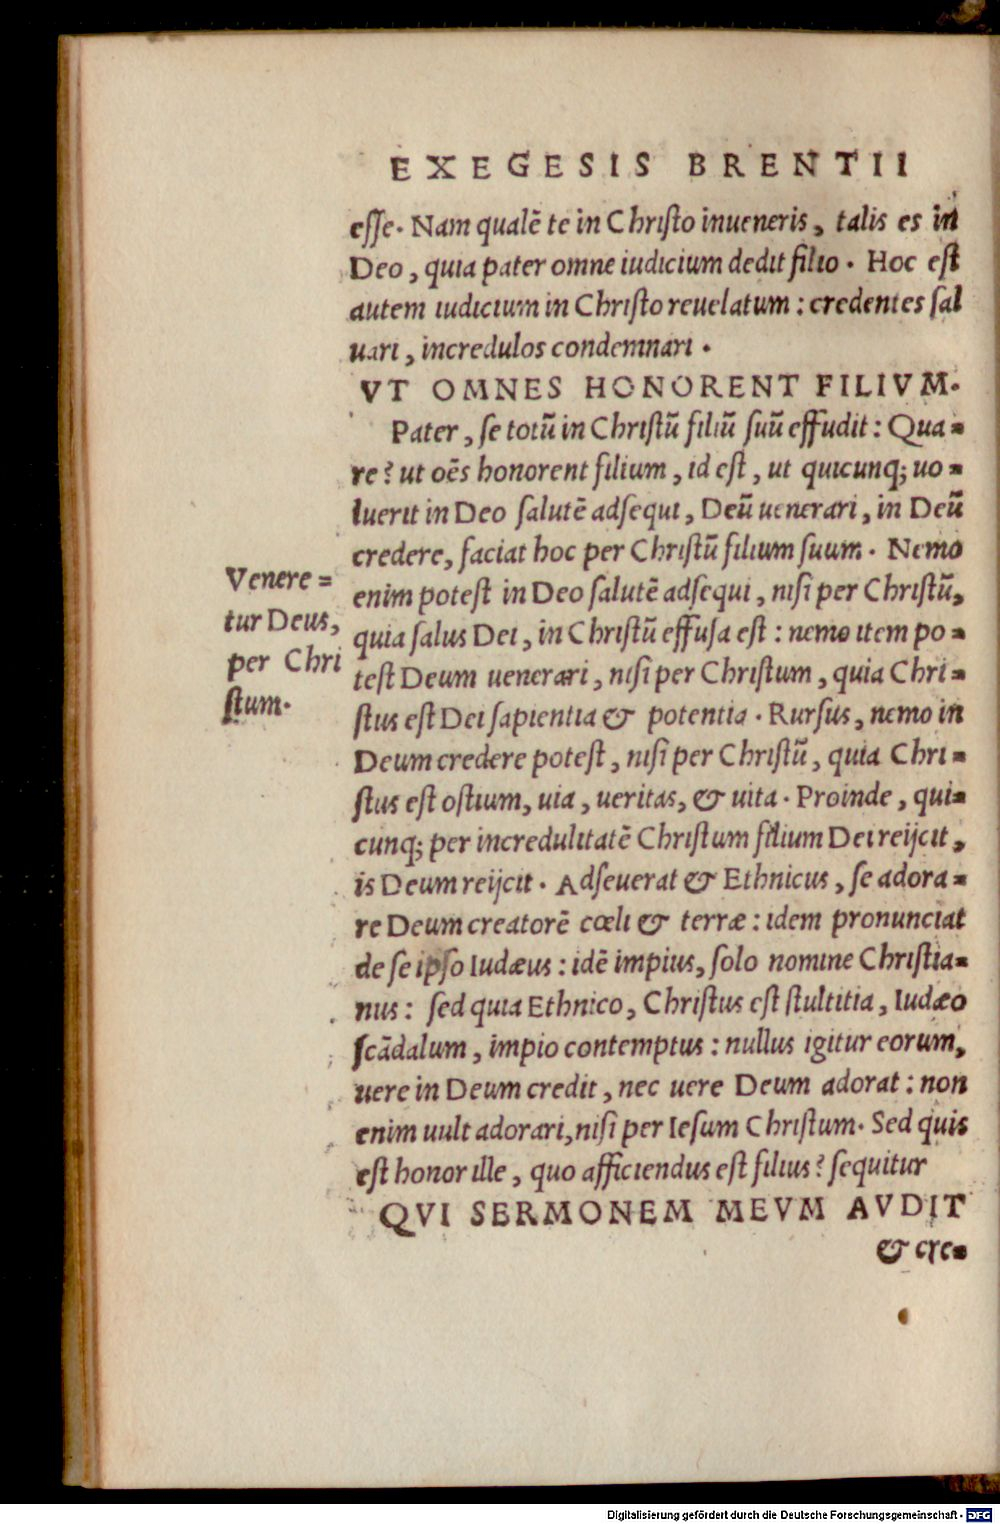 EXEGESIS BRENTII
esse. Nam qualē te in Christo inueneris, talis es in
Deo, quia pater omne iudicium dedit filio. Hoc est
autem iudicium in Christo reuelatum: credentes sal
uari, incredulos condemnari.
VT OMNES HONORENT FILIVM.
Pater, se totū in Christū filiū suū effudit: Qua=
re? ut oēs honorent filium, id est, ut quicunq; uo=
luerit in Deo salutē adsequi, Deū uenerari, in Deū
credere, faciat hoc per Christū filium suum. Nemo
enim potest in Deo salutē adsequi, nisi per Christū,
quia salus Dei, in Christū effusa est: nemo item po=
test Deum uenerari, nisi per Christum, quia Chri=
stus est Dei sapientia & potentia. Rursus, nemo in
Deum credere potest, nisi per Christū, quia Chri=
stus est ostium, uia, ueritas, & uita. Proinde, qui=
cunq; per incredulitatē Christum filium Dei reijcit,
is Deum reijcit. Adseuerat & Ethnicus, se adora=
re Deum creatorē cœli & terræ: idem pronunciat
de se ipso Iudæus: idē impius, solo nomine Christia=
nus: sed quia Ethnico, Christus est stultitia, Iudæo
scādalum, impio contemptus: nullus igitur eorum,
uere in Deum credit, nec uere Deum adorat: non
enim uult adorari, nisi per Iesum Christum. Sed quis
est honor ille, quo afficiendus est filius? sequitur
QVI SERMONEM MEVM AVDIT
& cre=
Venere=
tur Deus,
per Chri
stum.
Digitalisierung gefördert durch die Deutsche Forschungsgemeinschaft - DFG